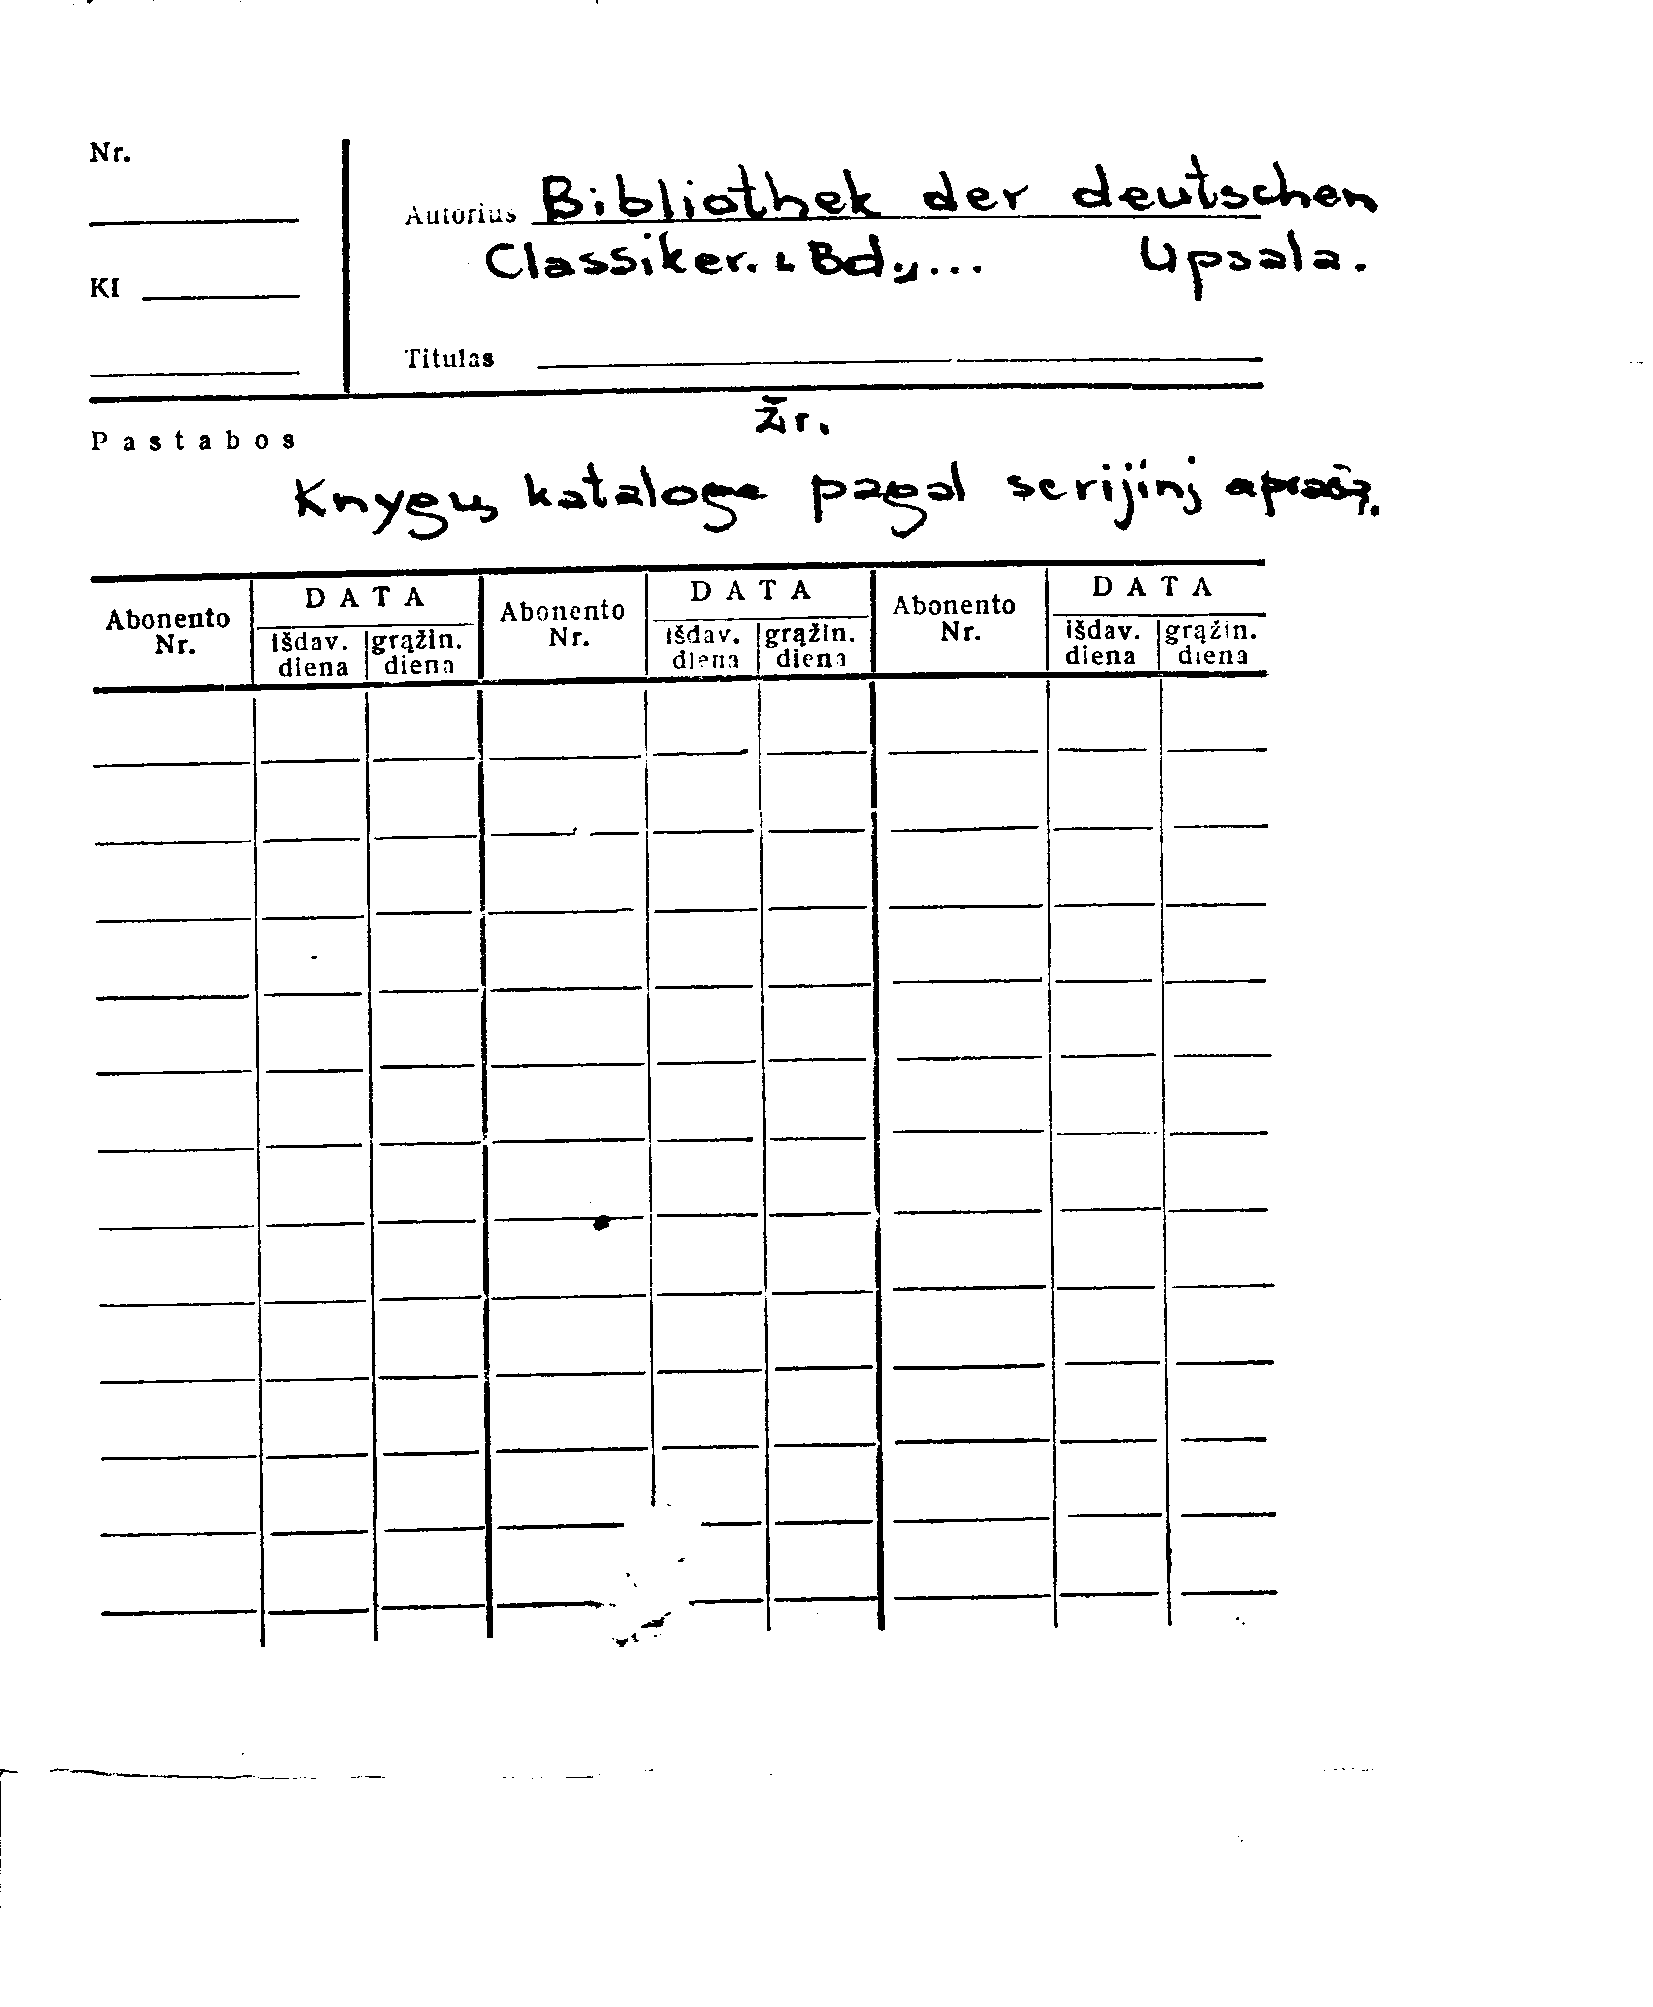 Nr.
Autorius Bibliothek der deutschen
Classiker. Bd., ... Upsala.
KI
Titulas
Žr.
Pastabos
Knygų kataloge pagal serijinį aprašą.
Abonento Nr. DATA Abonento Nr. DATA Abonento Nr. DATA
išdav. diena grąžin. diena išdav. diena grąžin. diena išdav. diena grąžin. diena